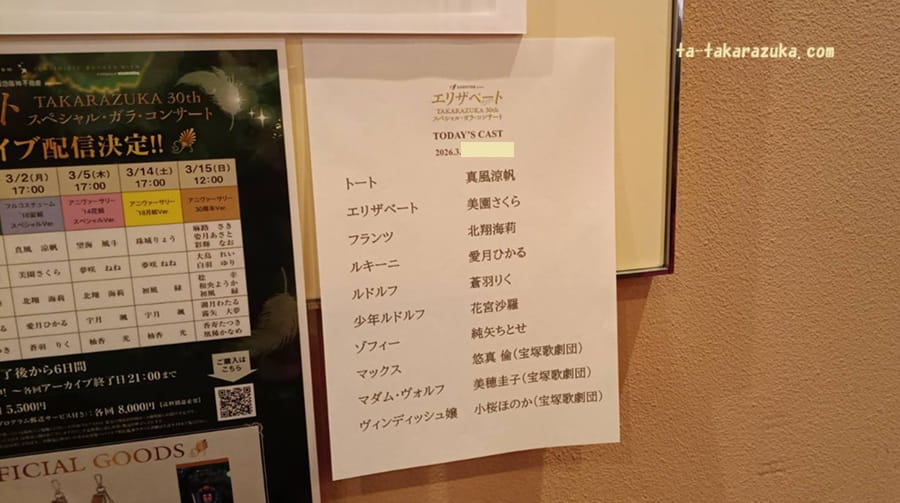 ta-takarazuka.com
ート TAKARAZUKA 30th
スペシャル・ガラ・コンサート
イブ配信決定!!
3/2(月) 3/5(木) 3/14(土) 3/15(日)
17:00 17:00 17:00 12:00
フルコスチューム アニヴァーサリー アニヴァーサリー アニヴァーサリー
スペシャルVer. '14花組 '18月組Ver. 30周年Ver.
スペシャルVer.
真風 涼帆 望海 風斗 珠城りょう 麻路 さき
姿月あさと
彩輝 なお
美園さくら 夢咲 ねね 夢咲 ねね 大鳥 れい
白羽 ゆり
北翔 海莉 北翔 海莉 初風 緑 稔 幸
和央ようか
初風 緑
愛月ひかる 宇月 颯 宇月 颯 湖月わたる
霧矢 大夢
蒼羽 りく 柚香 光 柚香 光 香寿たつき
凰稀かなめ
了後から6日間
~各回アーカイブ終了日21:00まで
5,500円
各回 8,000円
ご購入は
こちら
FICIAL GOODS
エリザベート
TAKARAZUKA 30th
スペシャル・ガラ・コンサート
TODAY'S CAST
2026.3.
トート 真風涼帆
エリザベート 美園さくら
フランツ 北翔海莉
ルキーニ 愛月ひかる
ルドルフ 蒼羽りく
少年ルドルフ 花宮沙羅
ゾフィー 純矢ちとせ
マックス 悠真 倫(宝塚歌劇団)
マダム・ヴォルフ 美穂圭子(宝塚歌劇団)
ヴィンディッシュ嬢 小桜ほのか(宝塚歌劇団)